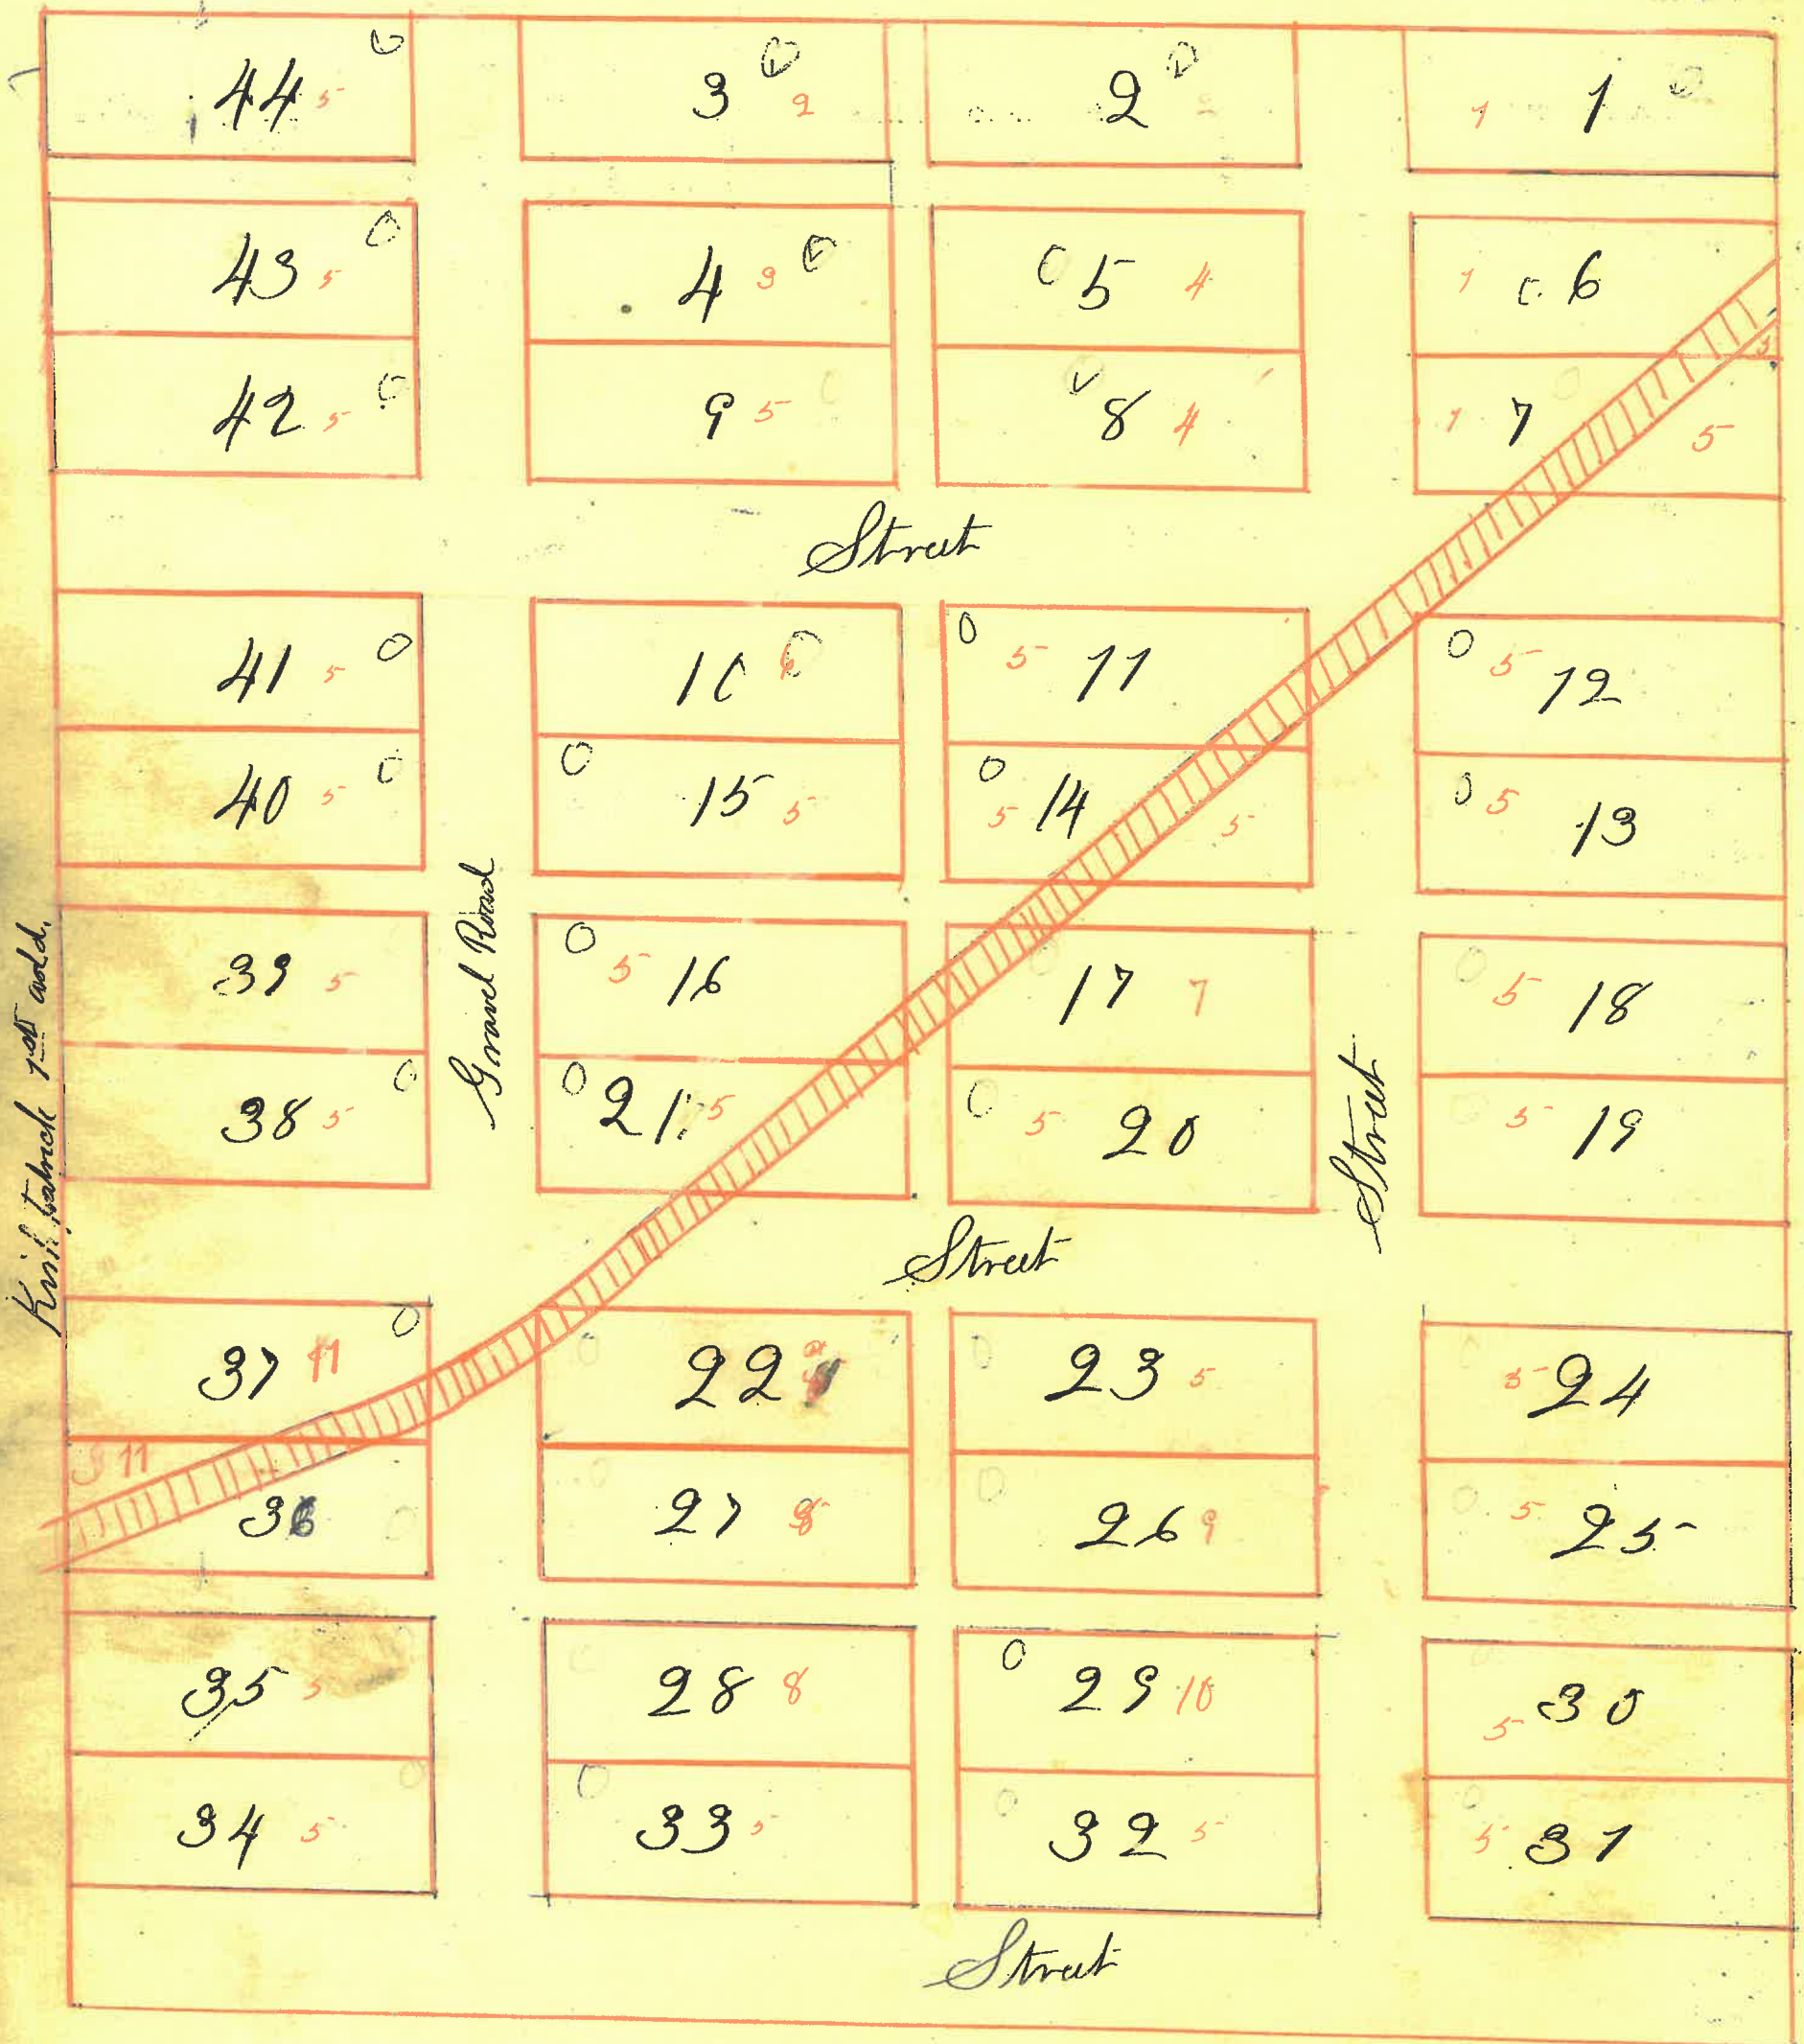 44 5 3 2 2 2 1 1
43 5 4 3 5 4 1 6
42 5 9 5 8 4 1 7 5
5
Street
41 5 10 6 5 11 5 12
40 5 15 5 5 14 5 5 13
Gravel Road
39 5 5 16 17 7 5 18
38 5 21 5 5 20 5 19
1st add.
Street
Street
37 11 22 23 5 5 24
11 36 27 8 26 9 5 25
35 5 28 8 29 10 5 30
34 5 33 5 32 5 5 31
Street